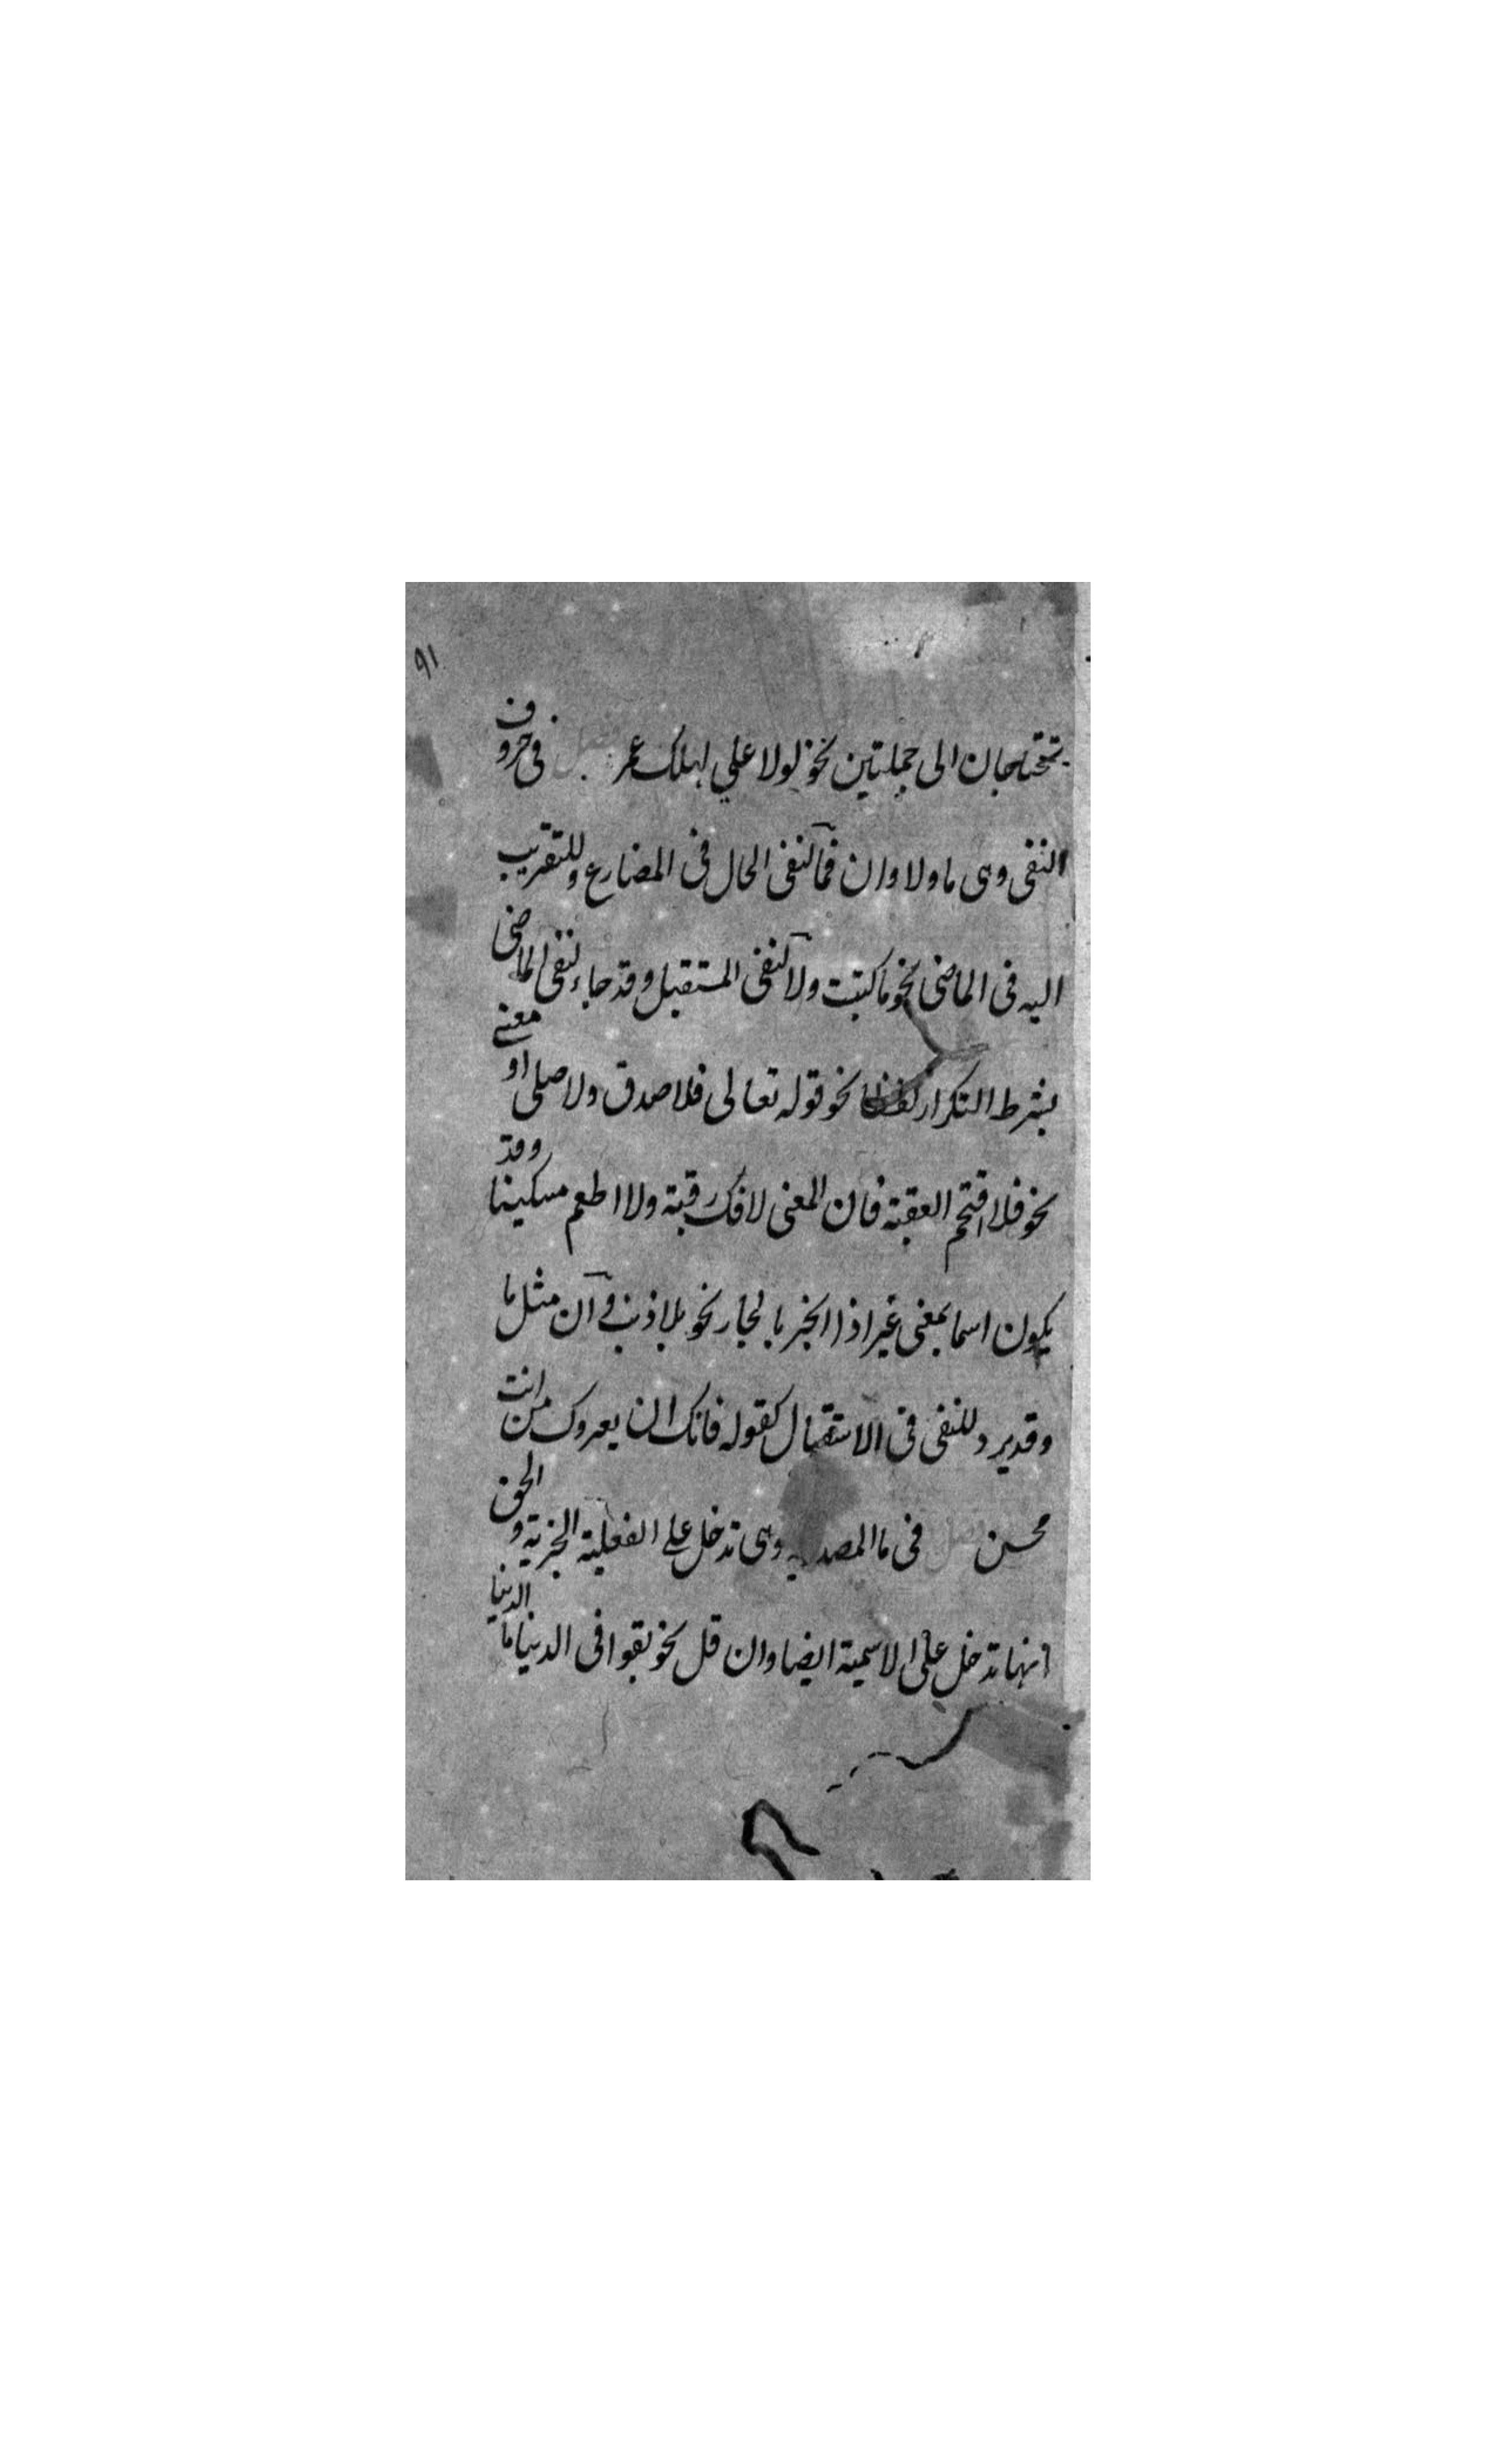 ٩١
تحتاجان الى جملتين نحو لولا علي لهلك عمر فصل فى حروف
النفى وهى ما ولا وان فما لنفى الحال فى المضارع وللتقريب
اليه فى الماضى نحو ما كتبت ولا لنفى المستقبل وقد جاء لنفى الماضى
بشرط التكرار لفظا نحو قوله تعالى فلا صدق ولا صلى او معنى
نحو فلا اقتحم العقبة فان المعنى لا فك رقبة ولا اطعم مسكينا وقد
يكون اسما بمعنى غير اذا انجر بالجار نحو بلا ذنب وان مثل ما
وقد يرد للنفى فى الاستقبال كقوله فانك ان يعروك من انت
محسن فصل فى ما المصدرية وهى تدخل على الفعلية الخبرية والحق
انها تدخل على الاسمية ايضا وان قل نحو بقوا فى الدنيا ما الدنيا